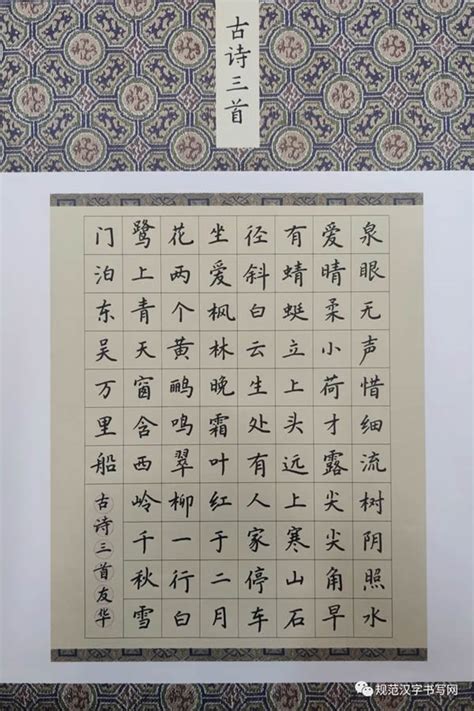 古诗三首
泉眼无声惜细流树阴照水
爱晴柔小荷才露尖尖角早
有蜻蜓立上头远上寒山石
径斜白云生处有人家停车
坐爱枫林晚霜叶红于二月
花两个黄鹂鸣翠柳一行白
鹭上青天窗含西岭千秋雪
门泊东吴万里船
古诗三首友华
规范汉字书写网